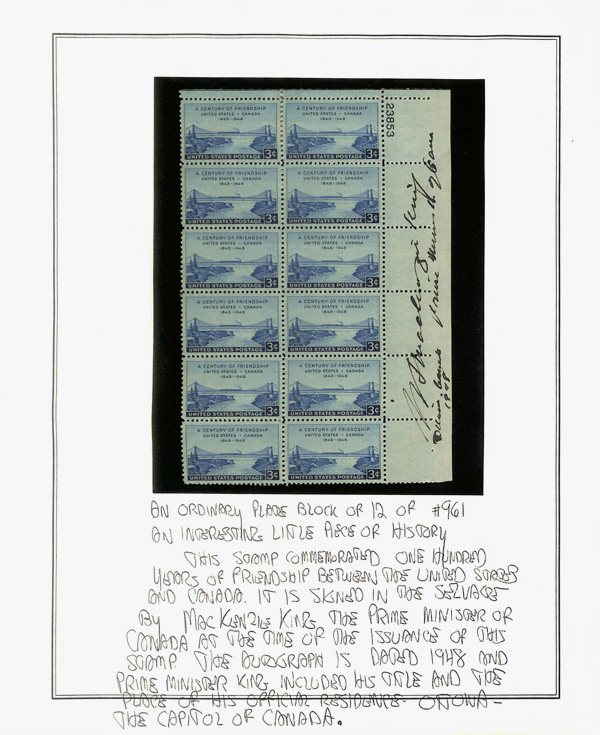 A CENTURY OF FRIENDSHIP A CENTURY OF FRIENDSHIP
UNITED STATES - CANADA UNITED STATES - CANADA
1848-1948 1848-1948
UNITED STATES POSTAGE 3¢ UNITED STATES POSTAGE 3¢
A CENTURY OF FRIENDSHIP A CENTURY OF FRIENDSHIP
UNITED STATES - CANADA UNITED STATES - CANADA
1848-1948 1848-1948
UNITED STATES POSTAGE 3¢ UNITED STATES POSTAGE 3¢
A CENTURY OF FRIENDSHIP A CENTURY OF FRIENDSHIP
UNITED STATES - CANADA UNITED STATES - CANADA
1848-1948 1848-1948
UNITED STATES POSTAGE 3¢ UNITED STATES POSTAGE 3¢
A CENTURY OF FRIENDSHIP A CENTURY OF FRIENDSHIP
UNITED STATES - CANADA UNITED STATES - CANADA
1848-1948 1848-1948
UNITED STATES POSTAGE 3¢ UNITED STATES POSTAGE 3¢
A CENTURY OF FRIENDSHIP A CENTURY OF FRIENDSHIP
UNITED STATES - CANADA UNITED STATES - CANADA
1848-1948 1848-1948
UNITED STATES POSTAGE 3¢ UNITED STATES POSTAGE 3¢
A CENTURY OF FRIENDSHIP A CENTURY OF FRIENDSHIP
UNITED STATES - CANADA UNITED STATES - CANADA
1848-1948 1848-1948
UNITED STATES POSTAGE 3¢ UNITED STATES POSTAGE 3¢
23853
Mackenzie King Prime Minister of Canada
Ottawa, Canada
1948
AN ORDINARY PLATE BLOCK OF 12 OF #961
AN INTERESTING LITTLE PIECE OF HISTORY
THIS STAMP COMMEMORATED ONE HUNDRED
YEARS OF FRIENDSHIP BETWEEN THE UNITED STATES
AND CANADA. IT IS SIGNED IN THE SELVAGE
BY MACKENZIE KING, THE PRIME MINISTER OF
CANADA AT THE TIME OF THE ISSUANCE OF THIS
STAMP. THE AUTOGRAPH IS DATED 1948 AND
PRIME MINISTER KING INCLUDED HIS TITLE AND THE
PLACE OF HIS OFFICIAL RESIDENCE- OTTOWA-
THE CAPITOL OF CANADA.